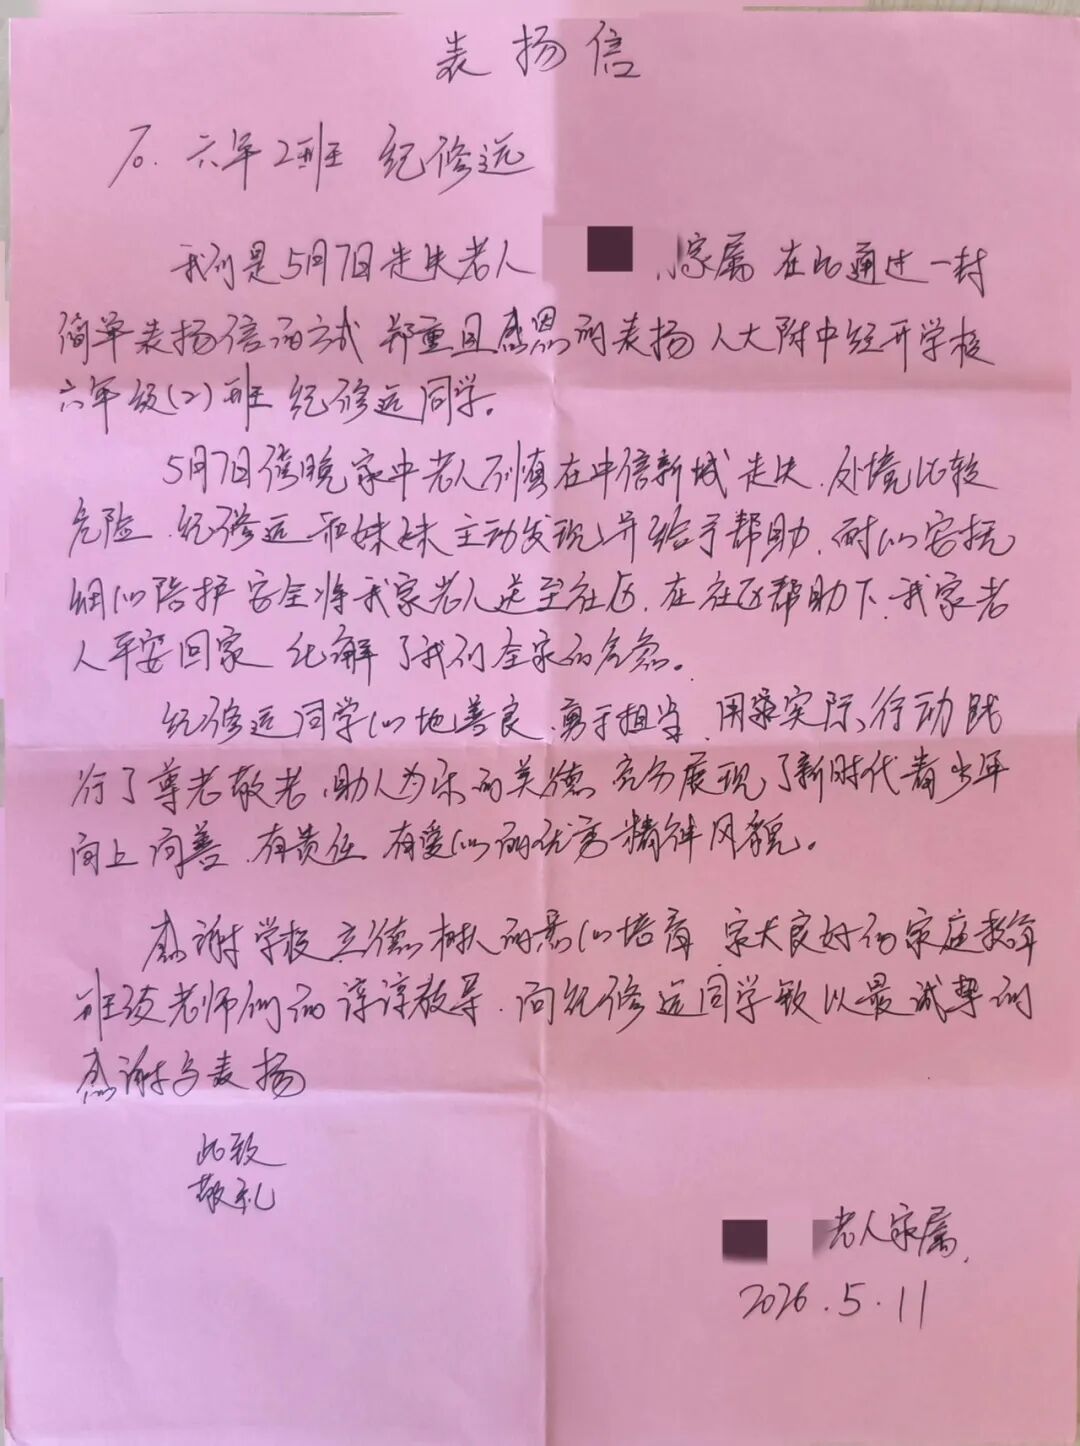 表扬信
六年2班 纪修远
我们是5月7日走失老人 家属 在此通过一封
简单表扬信的方式 郑重且感恩的表扬人大附中经开学校
六年级(2)班 纪修远同学。
5月7日傍晚家中老人 在中信新城走失.处境比较
危险.纪修远和妹妹主动发现并给予帮助.耐心安抚
细心陪护安全将我家老人送至社区.在社区帮助下.我家老
人平安回家 化解了我们全家的危急。
纪修远同学心地善良.勇于担当.用实际行动践
行了尊老敬老.助人为乐的美德 充分展现了新时代青少年
向上向善.有责任 有爱心的优秀精神风貌。
感谢学校立德树人的悉心培育 家长良好的家庭教育
班级老师们的谆谆教导.向纪修远同学致以最诚挚的
感谢与表扬
此致
敬礼
老人家属
2026.5.11